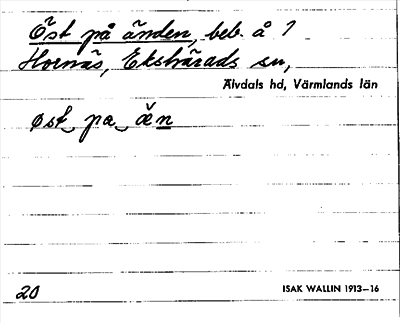 Öst på änden, beb. å 1
Hornäs, Ekshärads sn,
Älvdals hd, Värmlands län
øst pa æn
20 ISAK WALLIN 1913–16